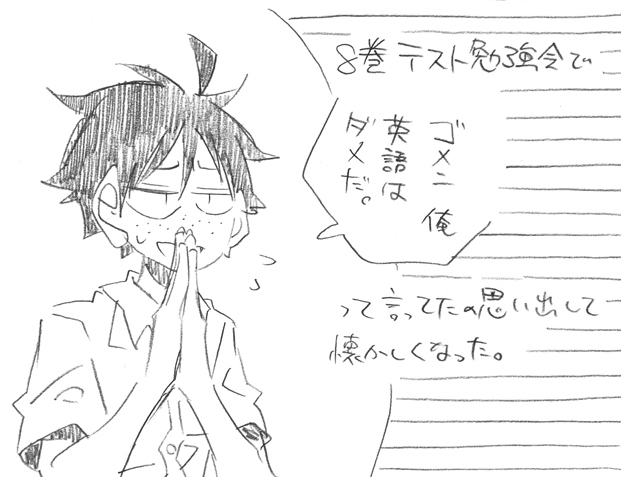 8巻 テスト勉強会で
ゴメニ 俺
英語は
ダメだ。
って言ってたの思い出して
懐かしくなった。